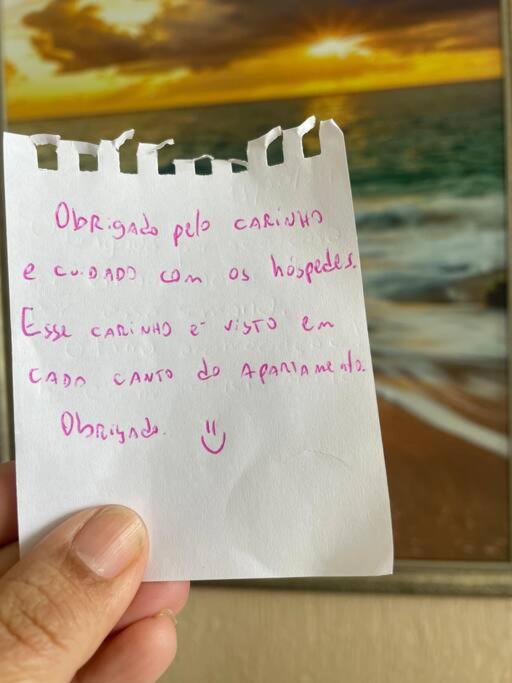 Obrigado pelo CARINHO
e CUIDADO com os hóspedes.
Esse CARINHO é VISTO em
CADA CANTO do APARTAMENTO.
Obrigado.